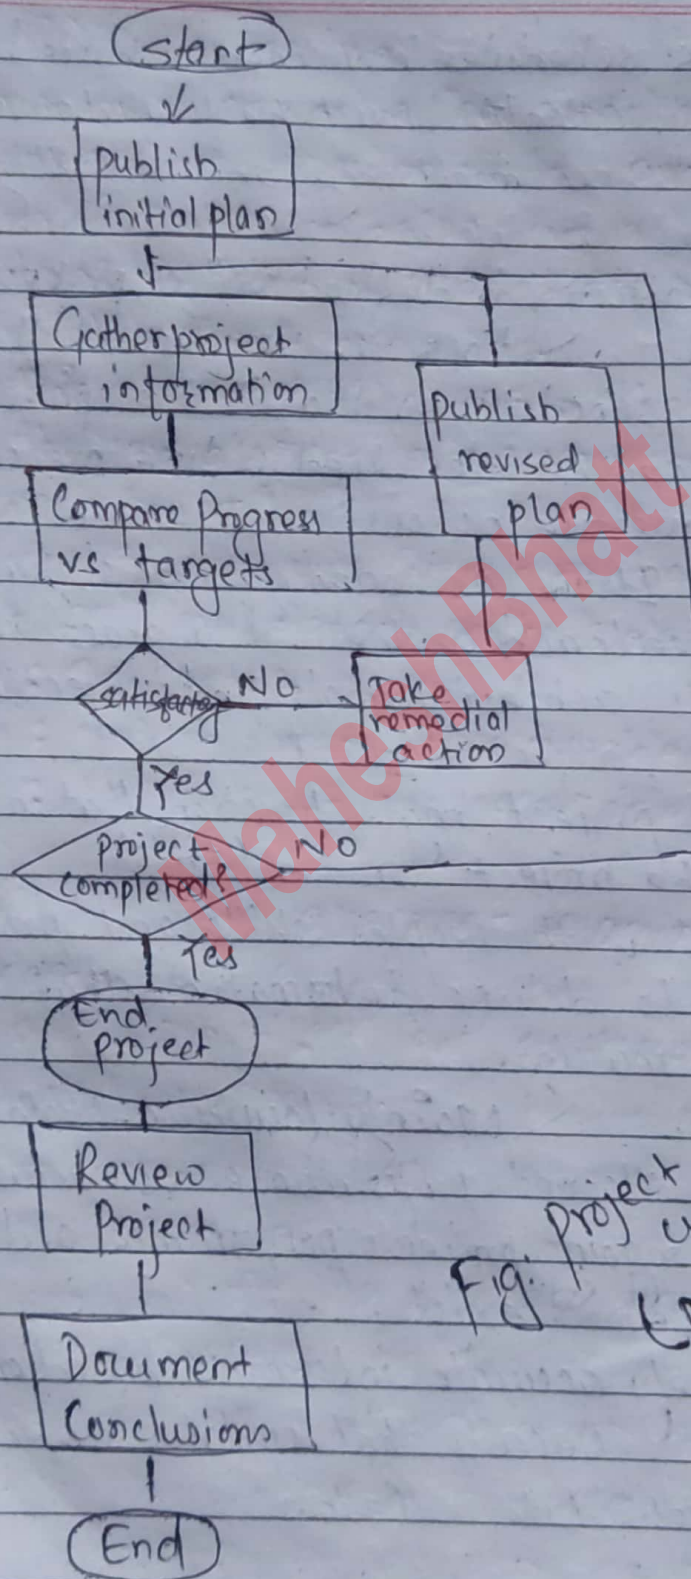 Start
publish
initial plan
Gather project
information
publish
revised
plan
Compare Progress
vs targets
satisfactory
No
Take
remedial
action
Yes
project
completed?
No
Yes
End
project
Review
Project
Fig. project
Document
Conclusions
End
MaheshBhatt